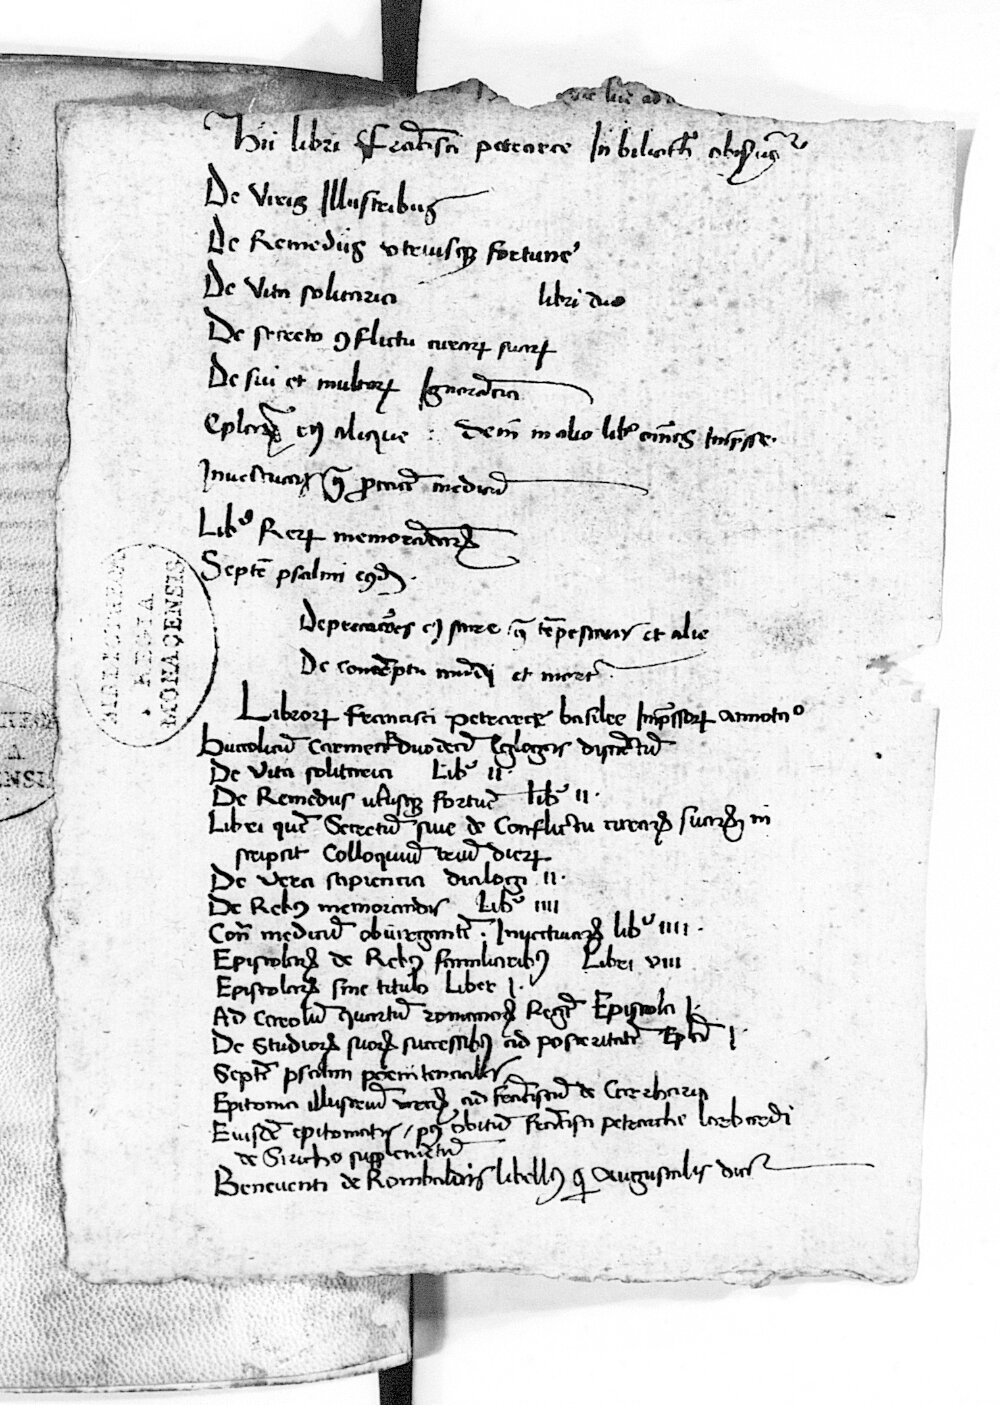 Hii libri Francisci petrarce In biliothe
De Viris Illustribus
De Remediis utriusque fortune
De Vita solitaria libri duo
De secreto conflictu curarum suarum
De sui et multorum Ignorantia
Eplarum eius alique : in alio libro omnes Impresse.
Invectivarum contra medicum
Liber Rerum memorandarum
Septem psalmi eiusdem.
et alie
De contemptu mundi et morte.
Librorum Francisci petrarce basilee Impressorum Annotatio
Bucolicum Carmen duodecim Eglogis distinctum
De Vita solitaria Lib. II.
De Remediis utriusque fortune lib. II.
Libri quem Secretum sive de Conflictu curarum suarum in
scripsit Colloquium trium dierum
De Vera sapientia dialogi II.
De Rebus memorandis Lib. IIII
Contra medicum obiurgantem. Invectivarum lib. IIII.
Epistolarum de Rebus familiaribus Libri VIII
Epistolarum sine titulo Liber I.
Ad Carolum quartum romanorum Regem Epistola I.
De Studiorum suorum successibus ad posteritatem Epla I
Septem psalmi penitentiales
Epitoma illustrium virorum ad franciscum de Carrharia
Eiusdem epitomatis, post obitum francisci petrarche Lombardi
de Siricho supplementum
Benevenuti de Rombaldis libellus qui Augustalis dicitur
BIBLIOTHECA
REGIA
MONACENSIS